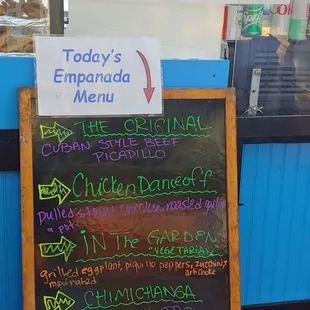 Today's
Empanada
Menu
THE ORIGINAL
CUBAN STYLE BEEF
PICADILLO
Chicken Danceoff
pulled chicken, roasted garlic
& pot
iN THE GARDEN
"VEGETARIAN"
grilled eggplant, piquillo peppers, zucchini,
marinated artichoke
CHIMICHANGA